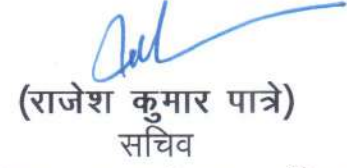 (राजेश कुमार पात्रे)
सचिव